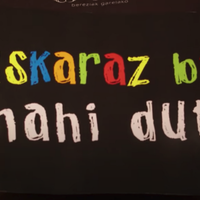 skaraz b
nahi dut